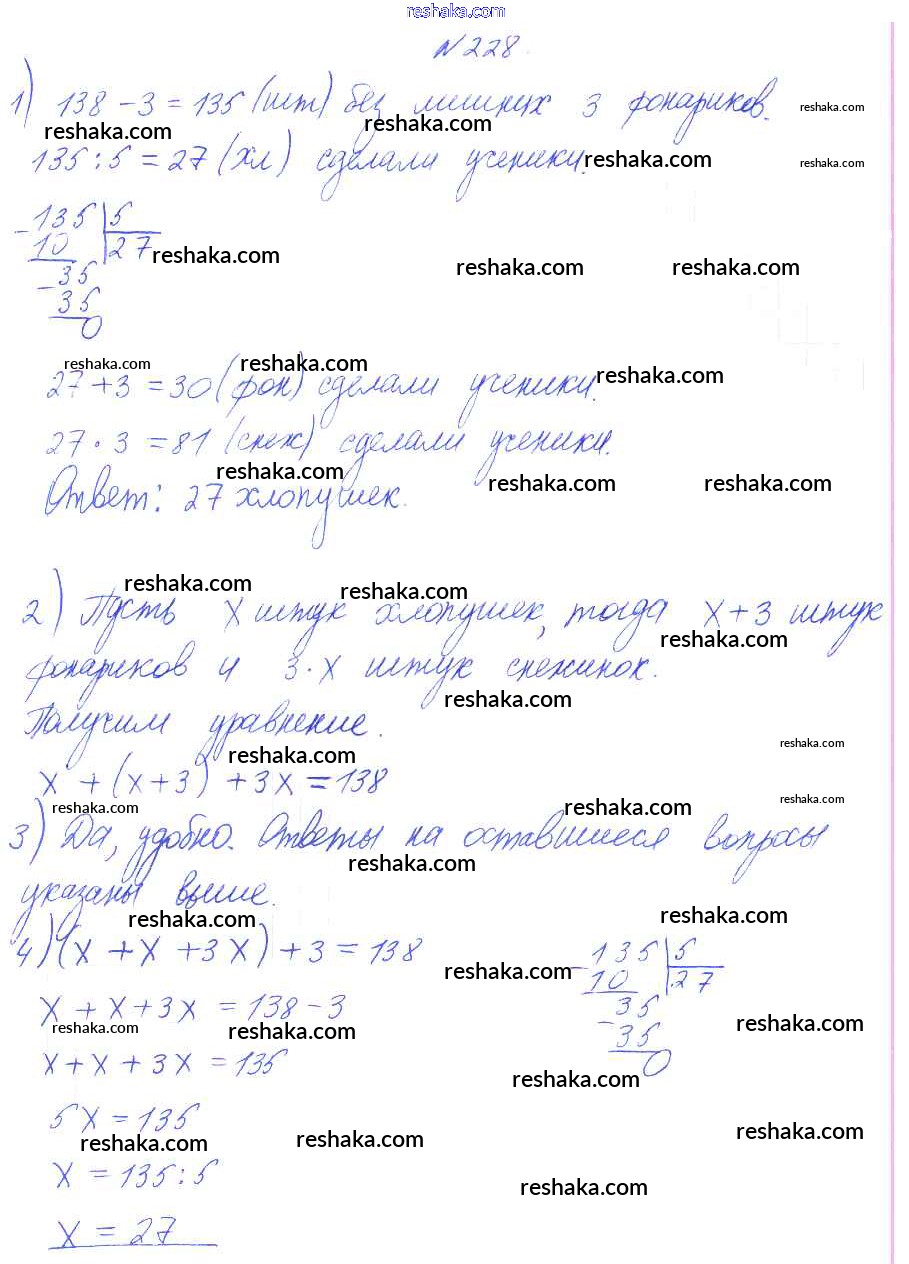 reshaka.com
№228.
1) 138 - 3 = 135 (шт) без лишних 3 фонариков. reshaka.com
reshaka.com reshaka.com
135 : 5 = 27 (хл) сделали ученики. reshaka.com reshaka.com
- 135 | 5
10 | 27 reshaka.com
reshaka.com reshaka.com
- 35
35
0
reshaka.com reshaka.com
27 + 3 = 30 (фон) сделали ученики. reshaka.com
27 · 3 = 81 (снеж) сделали ученики.
reshaka.com reshaka.com reshaka.com
Ответ: 27 хлопушек.
reshaka.com reshaka.com
2) Пусть x штук хлопушек, тогда x + 3 штук
reshaka.com
фонариков и 3 · x штук снежинок.
reshaka.com
Получим уравнение.
reshaka.com reshaka.com
x + (x + 3) + 3x = 138
reshaka.com reshaka.com reshaka.com
3) Да, удобно. Ответы на оставшиеся вопросы
reshaka.com
указаны выше.
reshaka.com reshaka.com
4) (x + x + 3x) + 3 = 138
- 135 | 5
10 | 27
reshaka.com
x + x + 3x = 138 - 3
- 35
35
0
reshaka.com reshaka.com reshaka.com
x + x + 3x = 135
reshaka.com
5x = 135
reshaka.com reshaka.com reshaka.com
x = 135 : 5
reshaka.com
x = 27